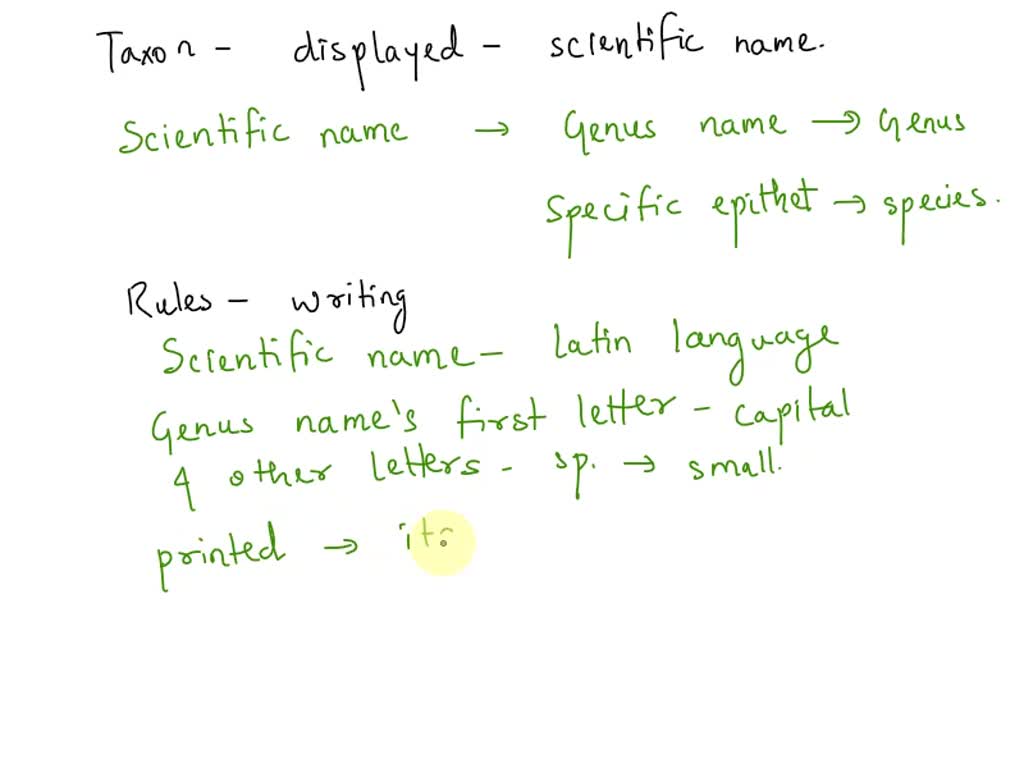 Taxon - displayed - scientific name.
Scientific name → Genus name → Genus
Specific epithet → species.
Rules - writing
Scientific name - Latin language
Genus name's first letter - capital
& other letters - sp. → small.
printed → ita